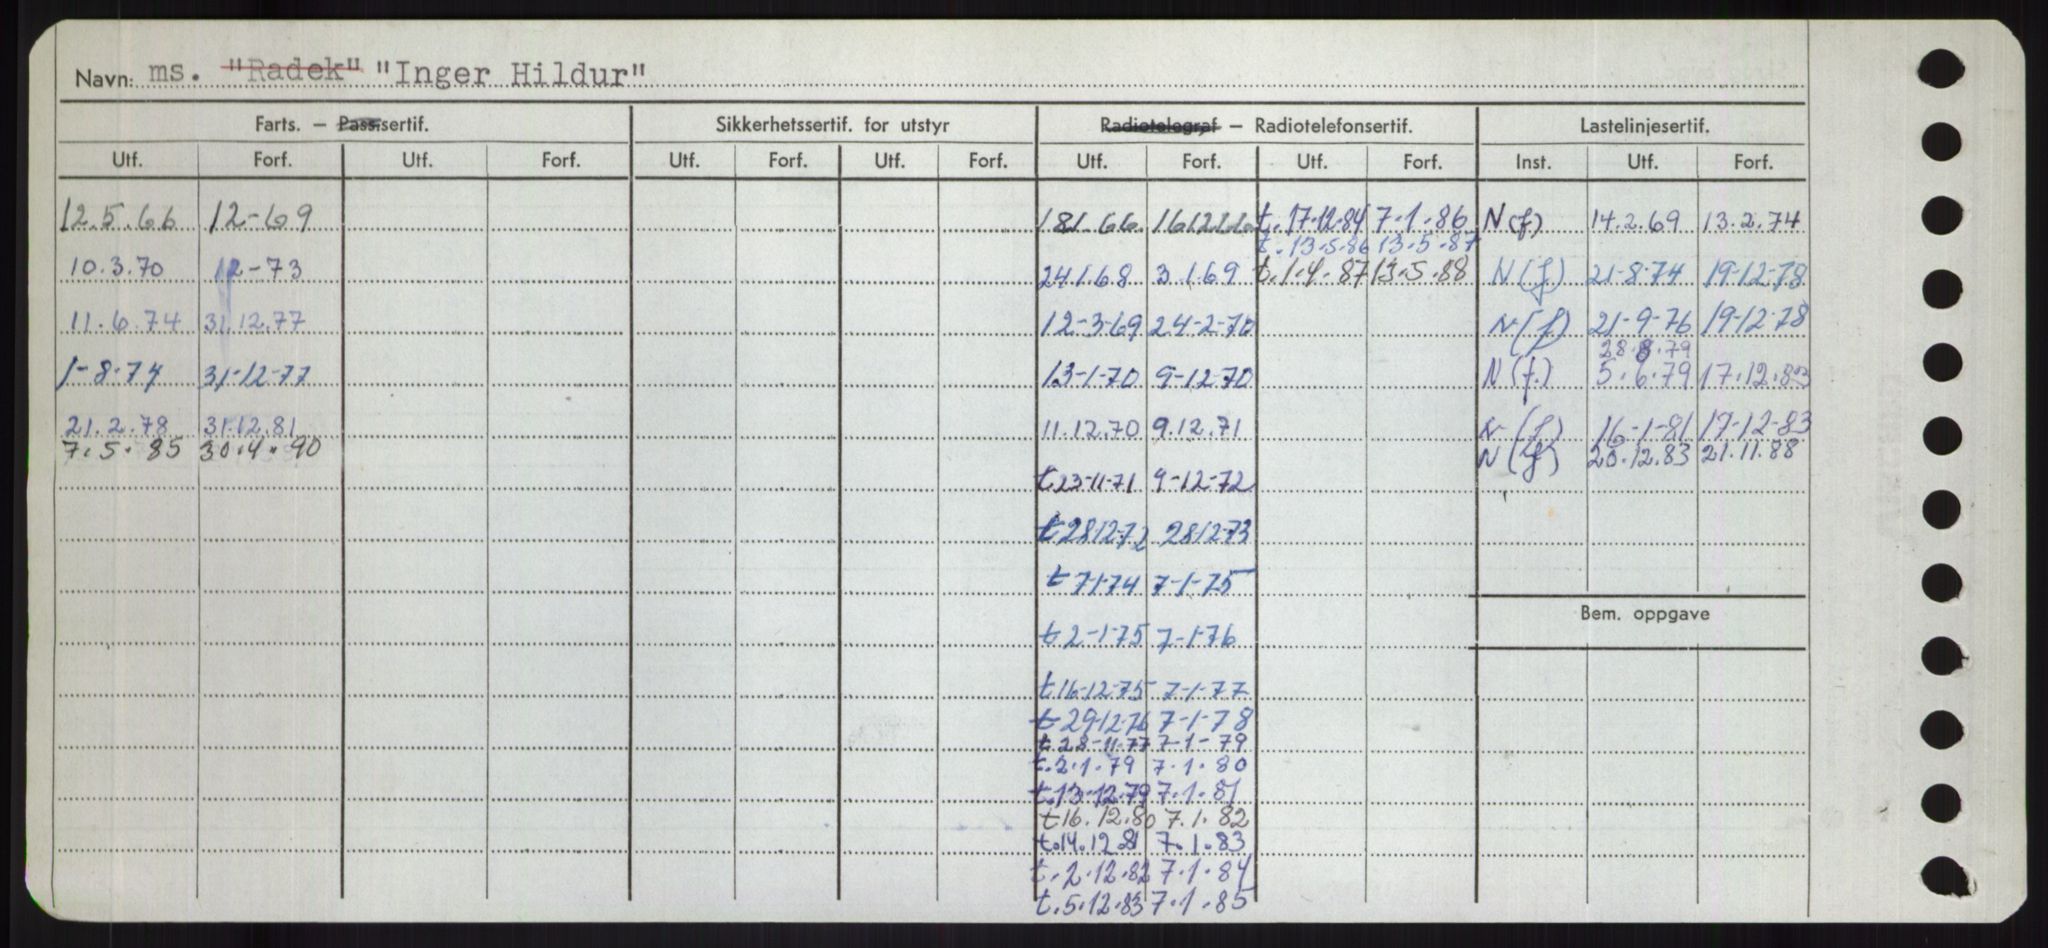 Navn: ms. "Radek" "Inger Hildur"
Farts. — Pass.sertif. Sikkerhetssertif. for utstyr Radiotelegraf — Radiotelefonsertif. Lastelinjesertif.
Utf. Forf. Utf. Forf. Utf. Forf. Utf. Forf. Utf. Forf. Utf. Forf. Inst. Utf. Forf.
12.5.66 12-69 181.66. t.17.12.84 7.1.86 N(f) 14.2.69 13.2.74
t.13.5.86 13.5.87
10.3.70 12-73 24.1.68 3.1.69 t.1.4.87 13.5.88 N(f.) 21-8-74 19-12-78
11.6.74 31.12.77 12-3-69 24-2-70 N(f) 21-9-76 19-12-78
28.8.79
1-8-74 31-12-77 13-1-70 9-12-70 N(f.) 5.6.79 17.12.83
21.2.78 31.12.81 11.12.70 9.12.71 N(f) 16-1-81 17-12-83
7.5.85 30.4.90 N(f) 20.12.83 21.11.88
t 23-11-71 9-12-72
t 2812-72 2812-73
t 7-1-74 7-1-75
Bem. oppgave
t 2-1-75 7-1-76
t 16-12-75 7-1-77
t 29-12-76 7-1-78
t. 28-11-77 7-1-79
t.2.1.79 7.1.80
t.13.12.79 7.1.81
t16.12.80 7.1.82
t.14.12.81 7.1.83
t.2.12.82 7.1.84
t.5.12.83 7.1.85